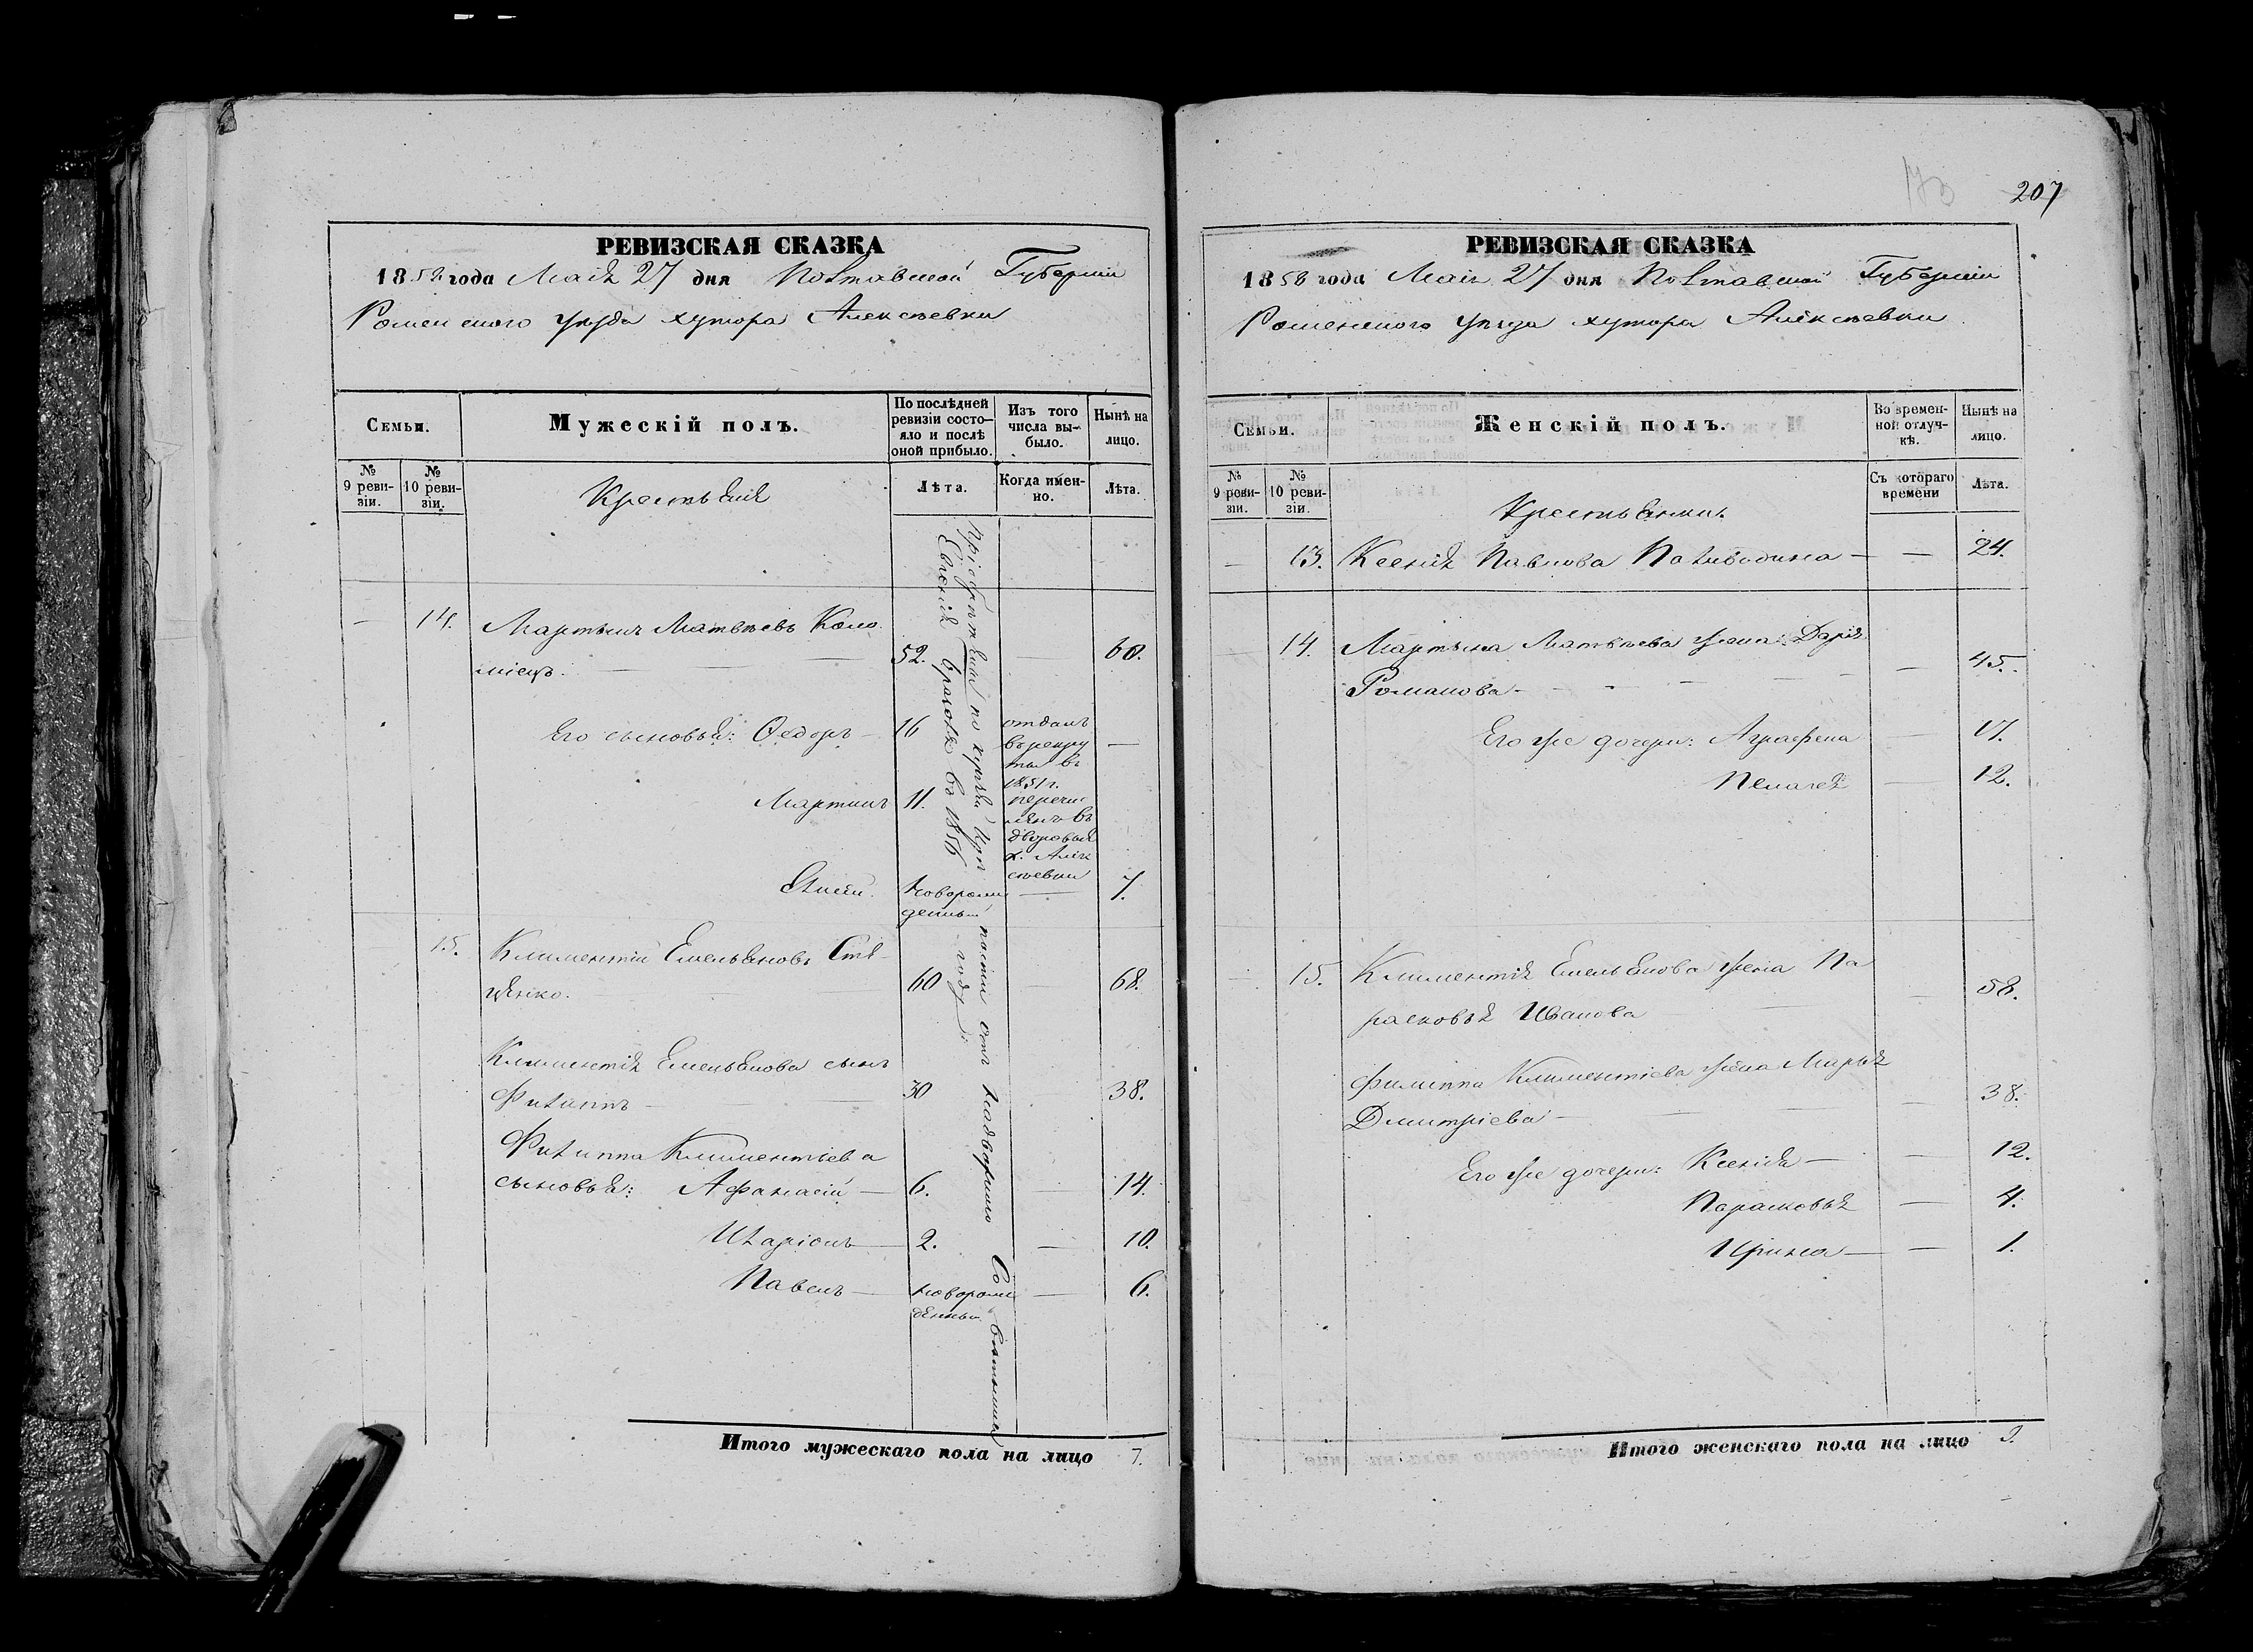 РЕВИЗСКАЯ СКАЗКА
1858 года Маія 27 дня Полтавской Губерніи
Роменского уѣзда хутора Алексѣевки
Семьи.
Мужескій полъ.
По послѣдней ревизіи состояло и послѣ оной прибыло.
Изъ того числа вы-было.
Нынѣ на лицо.
№ 9 реви-зіи.
№ 10 реви-зіи.
Крестьяне
Лѣта.
Когда имен-но.
Лѣта.
— 14. Мартынъ Матвѣевъ Коло
міецъ. — — 52. — 60.
Его сыновья: Федоръ — 16 отданъ
въ рекру
ты въ
1851 г. —
Мартинъ 11. перечис
ленъ въ
дворовые
х. Алек
сѣевки
новорож
денный — 7.
15. Климентій Емельяновъ
60 — 68.
Климентія Емельянова сынъ
Филиппъ — 30 38.
Филиппа Климентіева
сыновья: Афанасій — 6. — 14.
Иларіонъ — 2. — 10.
Павелъ — новорож
денный — 6.
Пріобрѣтены по купчей крѣпости отъ Надворного Совѣтника
Евгенія въ 1856 году
Итого мужескаго пола на лицо 7.
207
РЕВИЗСКАЯ СКАЗКА
1858 года Маія 27 дня Полтавской Губерніи
Роменского уѣзда хутора Алексѣевки
Семьи.
Женскій полъ.
Во времен-ной отлуч-кѣ.
Нынѣ на лицо.
№ 9 реви-зіи.
№ 10 реви-зіи.
Крестьянки.
Съ котораго времени
Лѣта.
— 13. Ксенія Павлова Паливодина — — 24.
— 14. Мартына Матвѣева жена: Дарія
Романова — — 45.
Его же дочери: Аграфена — 17.
Пелагея — 12.
— 15. Климентія Емельянова жена Па
расковья Иванова — 58.
Филиппа Климентіева жена Марья
Дмитріева — — 38.
Его же дочери: Ксенія — — 12.
Парасковья — 4.
Ирина — — 1.
Итого женскаго пола на лицо 9.